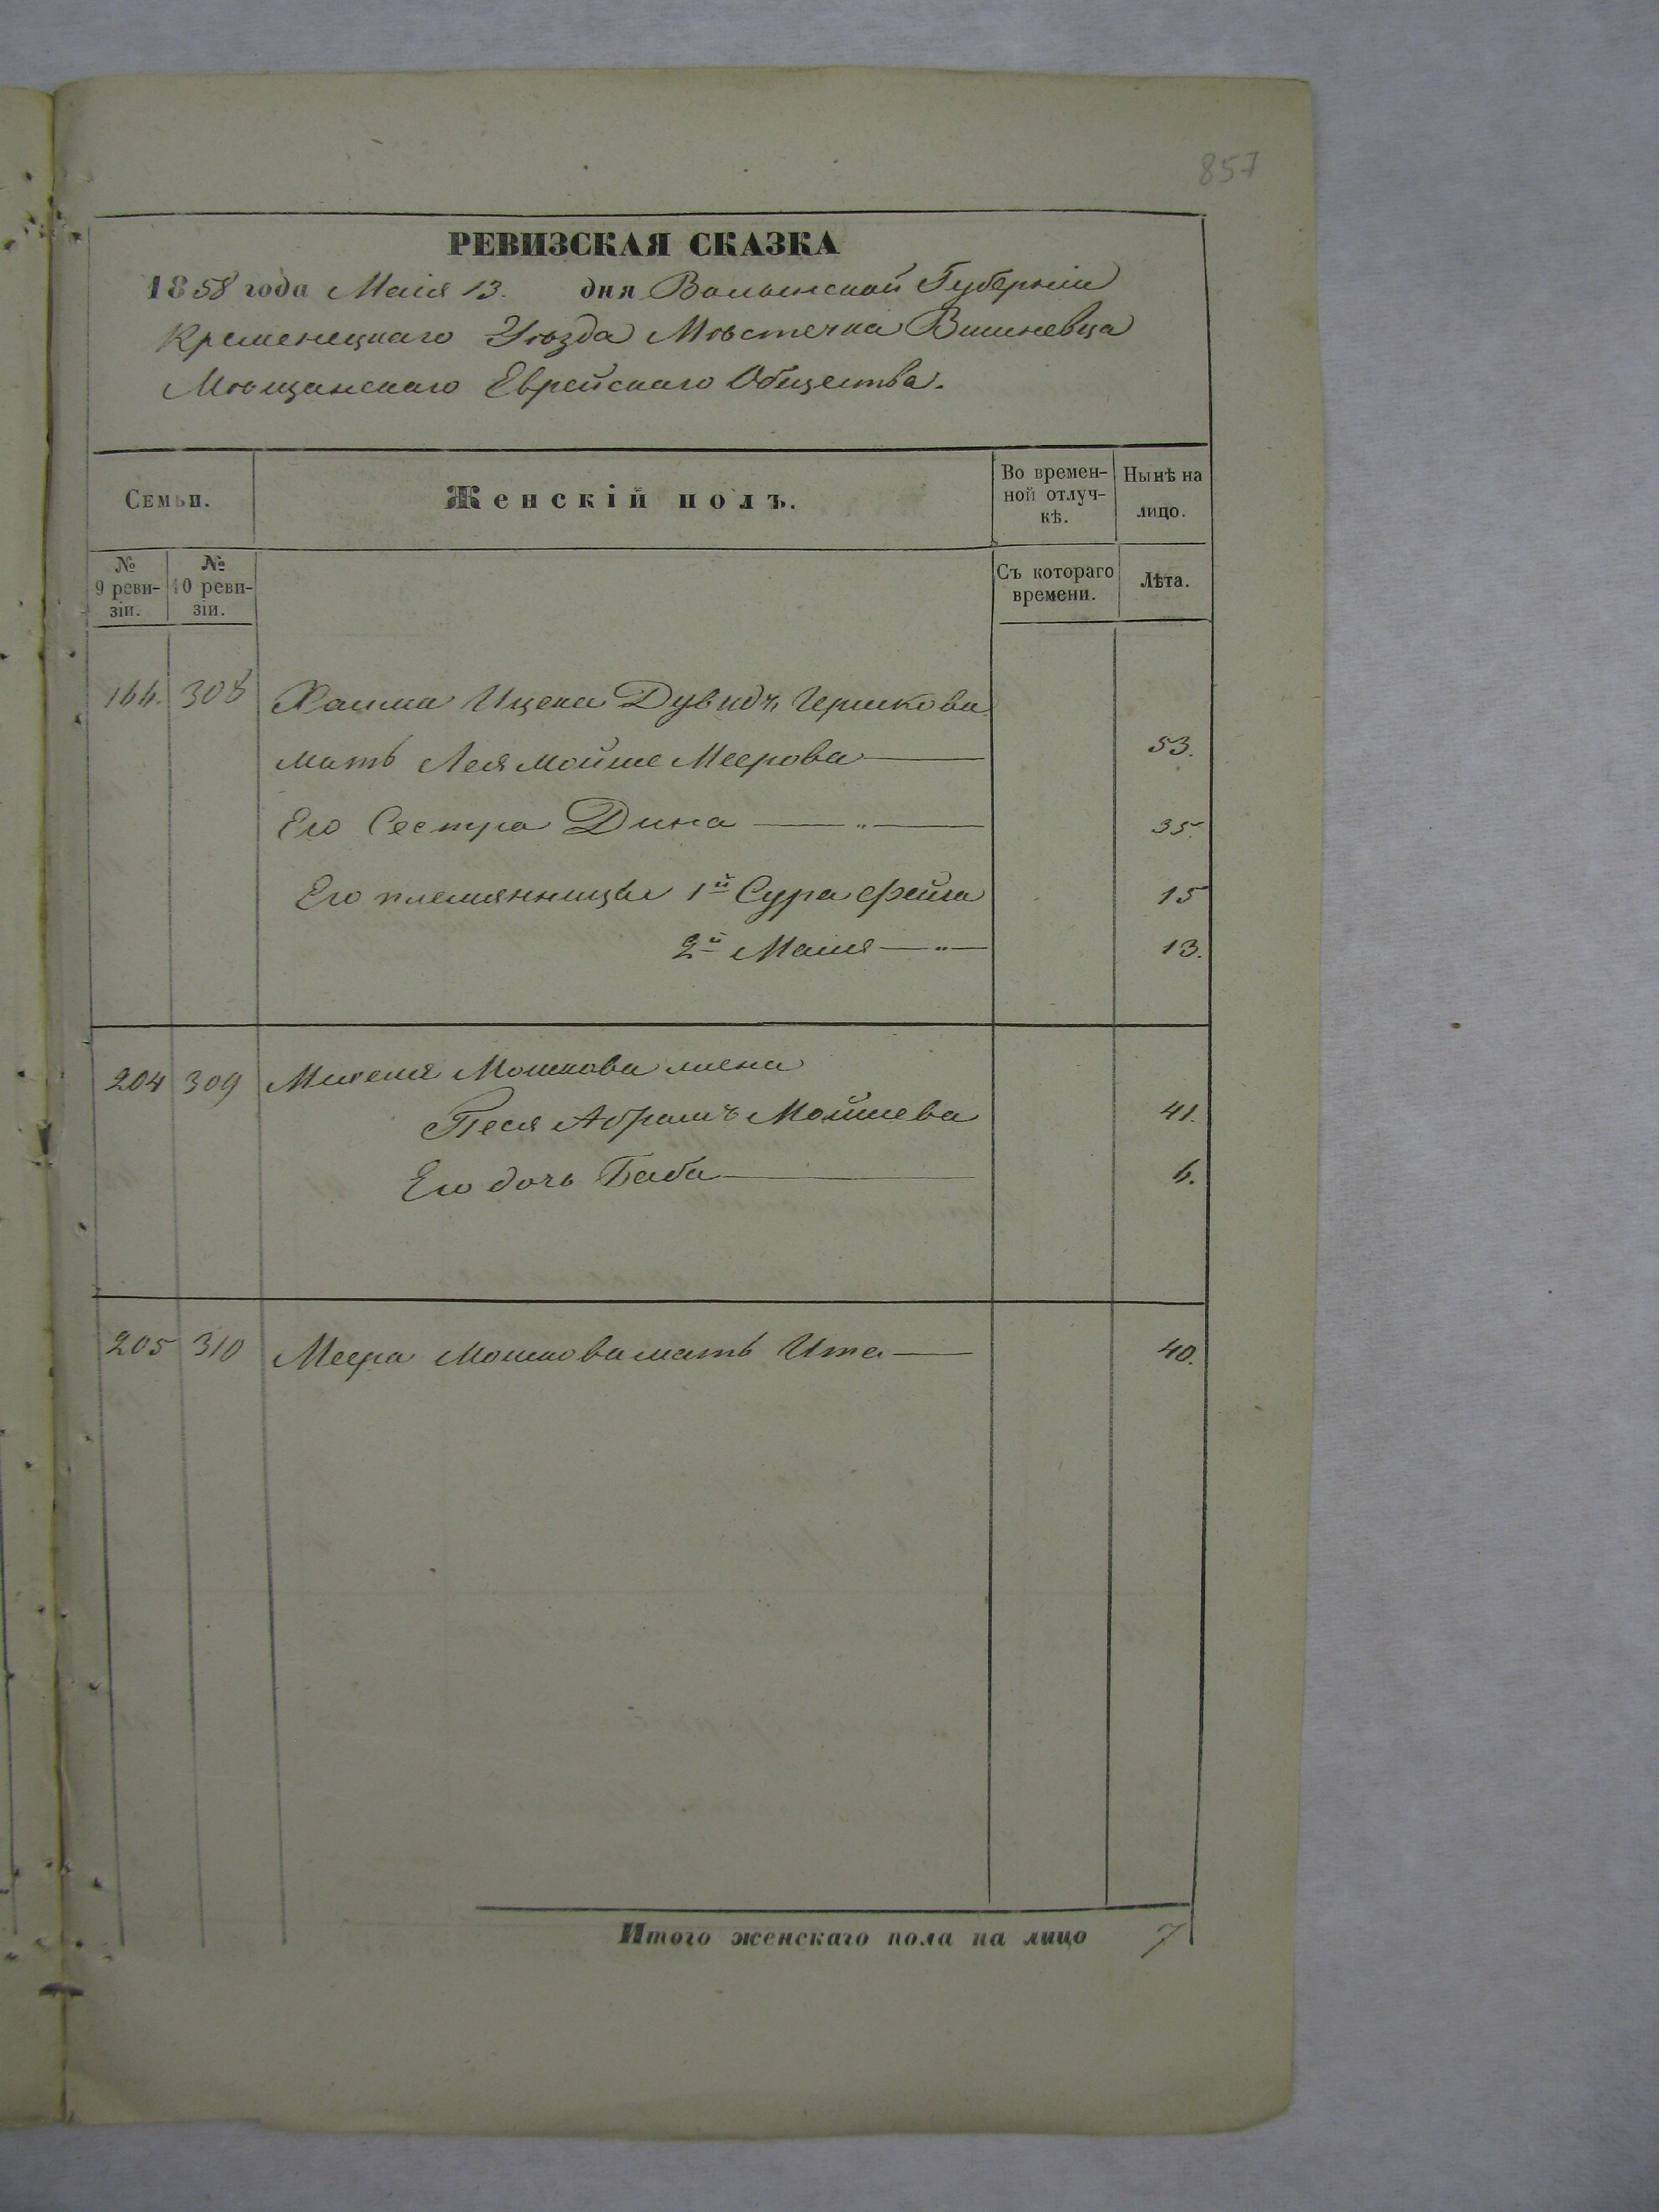 857
РЕВИЗСКАЯ СКАЗКА
1858 года Маія 13. дня Волынской Губерніи
Кременецкаго Уѣзда Мѣстечка Вишневца
Мѣщанскаго Еврейскаго Общества.
Семьи. Женскій полъ. Во временной отлучкѣ. Нынѣ на лицо.
№ 9 ревизіи. № 10 ревизіи. Съ котораго времени. Лѣта.
308 Хаима Ицека Дувидъ Гершкова
мать Лея Мойше Меерова 53.
Его Сестра Дина — „ — 35.
Его племянницы 1й Сура Фейга 15
2й Маия — „ — 13.
204 309 Михеля Мошкова жена
Песя Абрамъ Мойшева 41.
Его дочь Баба 6.
205 310 Меера Мошкова мать Ита 40.
Итого женскаго пола на лицо 7